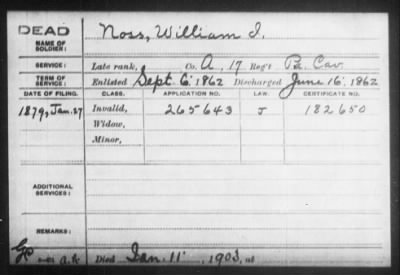 DEAD
NAME OF SOLDIER: Noss, William I.
SERVICE: Late rank, Co. A, 17 Reg't Pa. Cav.
TERM OF SERVICE: Enlisted Sept. 6, 1862 Discharged June 16, 1862
DATE OF FILING. CLASS. APPLICATION NO. LAW. CERTIFICATE NO.
1879, Jan. 27 Invalid, 265643 J 182650
Widow,
Minor,
ADDITIONAL SERVICES:
REMARKS:
Died Jan. 11, 1903, at